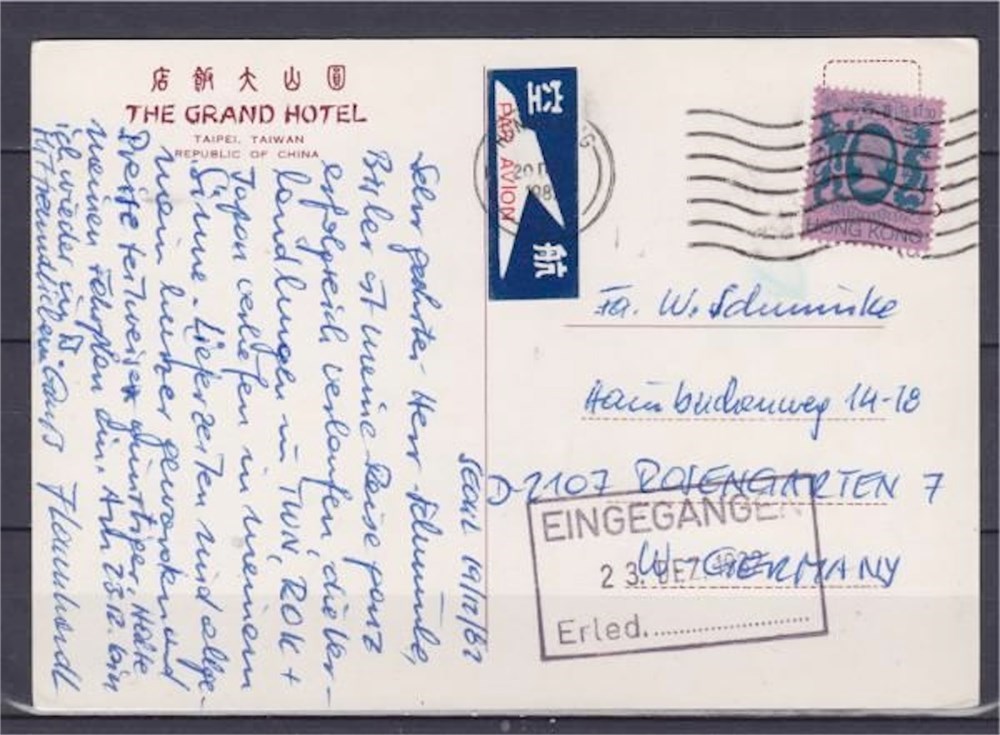 店飯大山圓
THE GRAND HOTEL
TAIPEI, TAIWAN
REPUBLIC OF CHINA
SEOUL 19/12/82
Sehr geehrter Herr
Bisher ist meine Reise ganz
erfolgreich verlaufen, die Ver-
handlungen in TWN, ROK +
Japan verliefen in meinem
Sinne. Lieferzeiten sind allge-
mein kürzer geworden und
Preise teilweise günstiger. Halte
meinen Fahrplan ein. Am 23.12. bin
ich wieder in D. Gruß
Mit freundlichem
空
PAR AVION
航
20
198
HONG KONG
Fa. W. Schmincke
Hainbuchenweg 14-18
D-2107 ROSENGARTEN 7
W. GERMANY
EINGEGANGEN
23. DEZ. 1982
Erled.